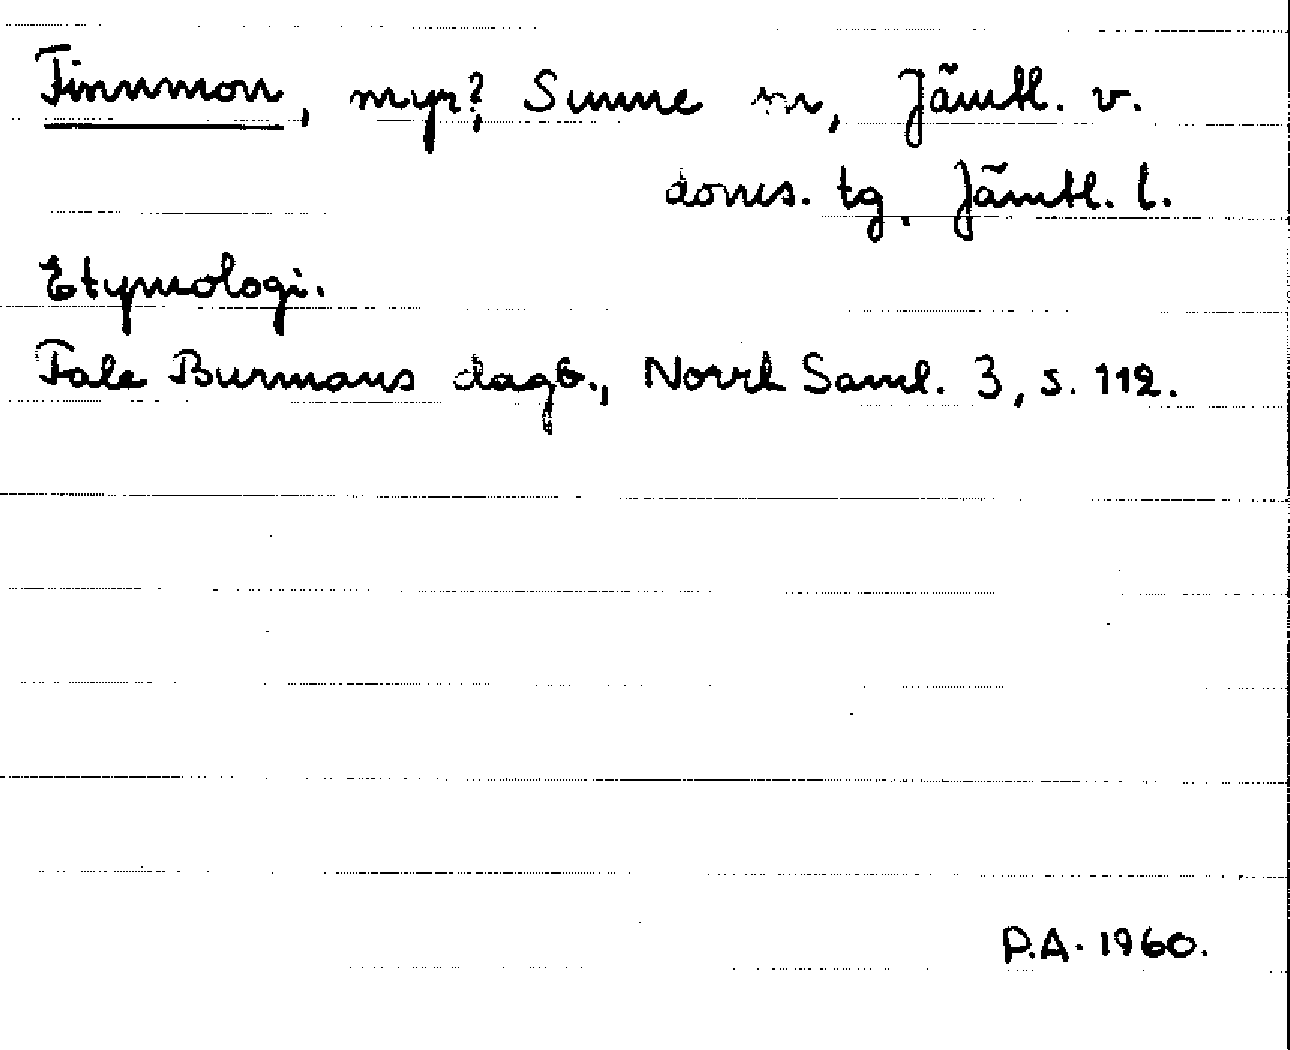 Finnmon, myr?, Sunne sn, Jämtl. v.
doms. tg. Jämtl. l.
Etymologi.
Fale Burmans dagb., Norrl Saml. 3, s. 112.
P.A. 1960.